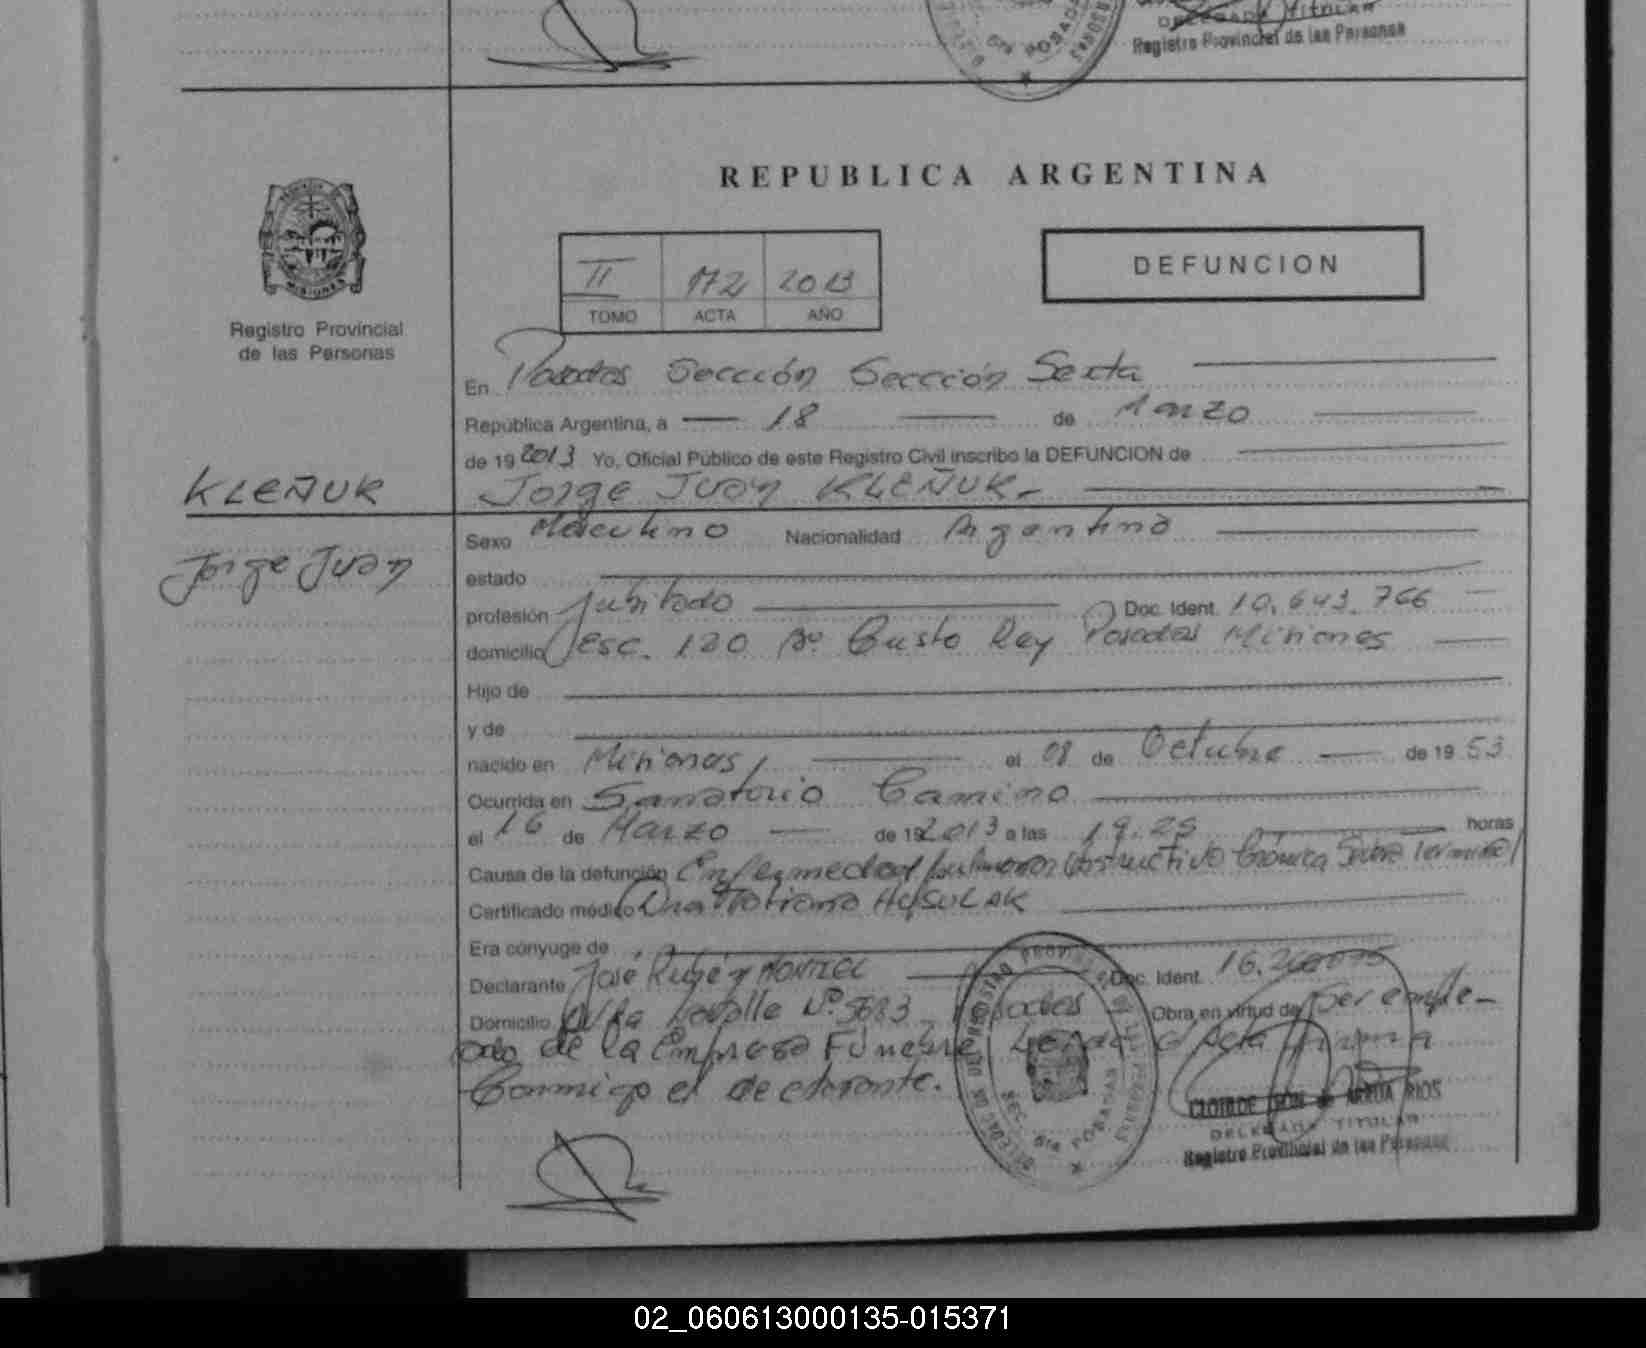 DELEGADA TITULAR
Registro Provincial de las Personas
REPUBLICA ARGENTINA
MISIONES
Registro Provincial
de las Personas
II 172 2013
TOMO ACTA AÑO
DEFUNCION
En Posadas Sección Sección Sexta
República Argentina, a 18 de Marzo
de 19 2013 Yo, Oficial Público de este Registro Civil inscribo la DEFUNCION de
KLEÑUK
Jorge Juan KLEÑUK
Jorge Juan
Sexo Masculino Nacionalidad Argentina
estado
profesión Jubilado Doc. Ident. 10.643.766
domicilio esc. 120 Bº Gusto Rey Posadas Misiones
Hijo de
y de
nacido en Misiones el 08 de Octubre de 19 53
Ocurrida en Sanatorio Camino
el 16 de Marzo de 19 2013 a las 19.25 horas
Causa de la defunción Enfermedad pulmonar Obstructivo Crónica Terminal
Certificado médico Dra
Era cónyuge de
Declarante José Rubén MONTIEL Doc. Ident. 16.
Domicilio Lavalle Nº 5683 Posadas Obra en virtud de Ser emple-
ado de la Empresa Fúnebre Acta firma
Conmigo el declarante.
CLOTILDE ARRUA RIOS
DELEGADA TITULAR
Registro Provincial de las Personas
02_060613000135-015371